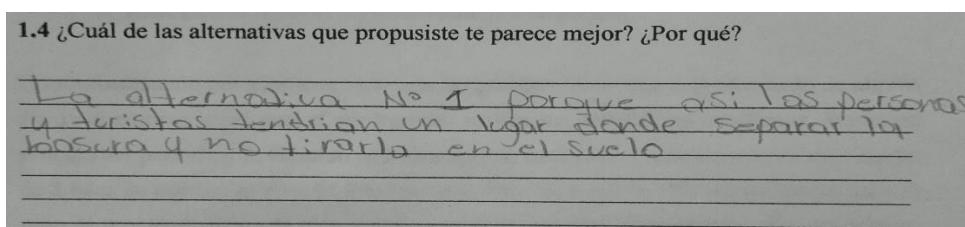 1.4 ¿Cuál de las alternativas que propusiste te parece mejor? ¿Por qué?
La alternativa N° 1 porque asi las personas
y turistas tendrian un lugar donde separar la
basura y no tirarla en el suelo